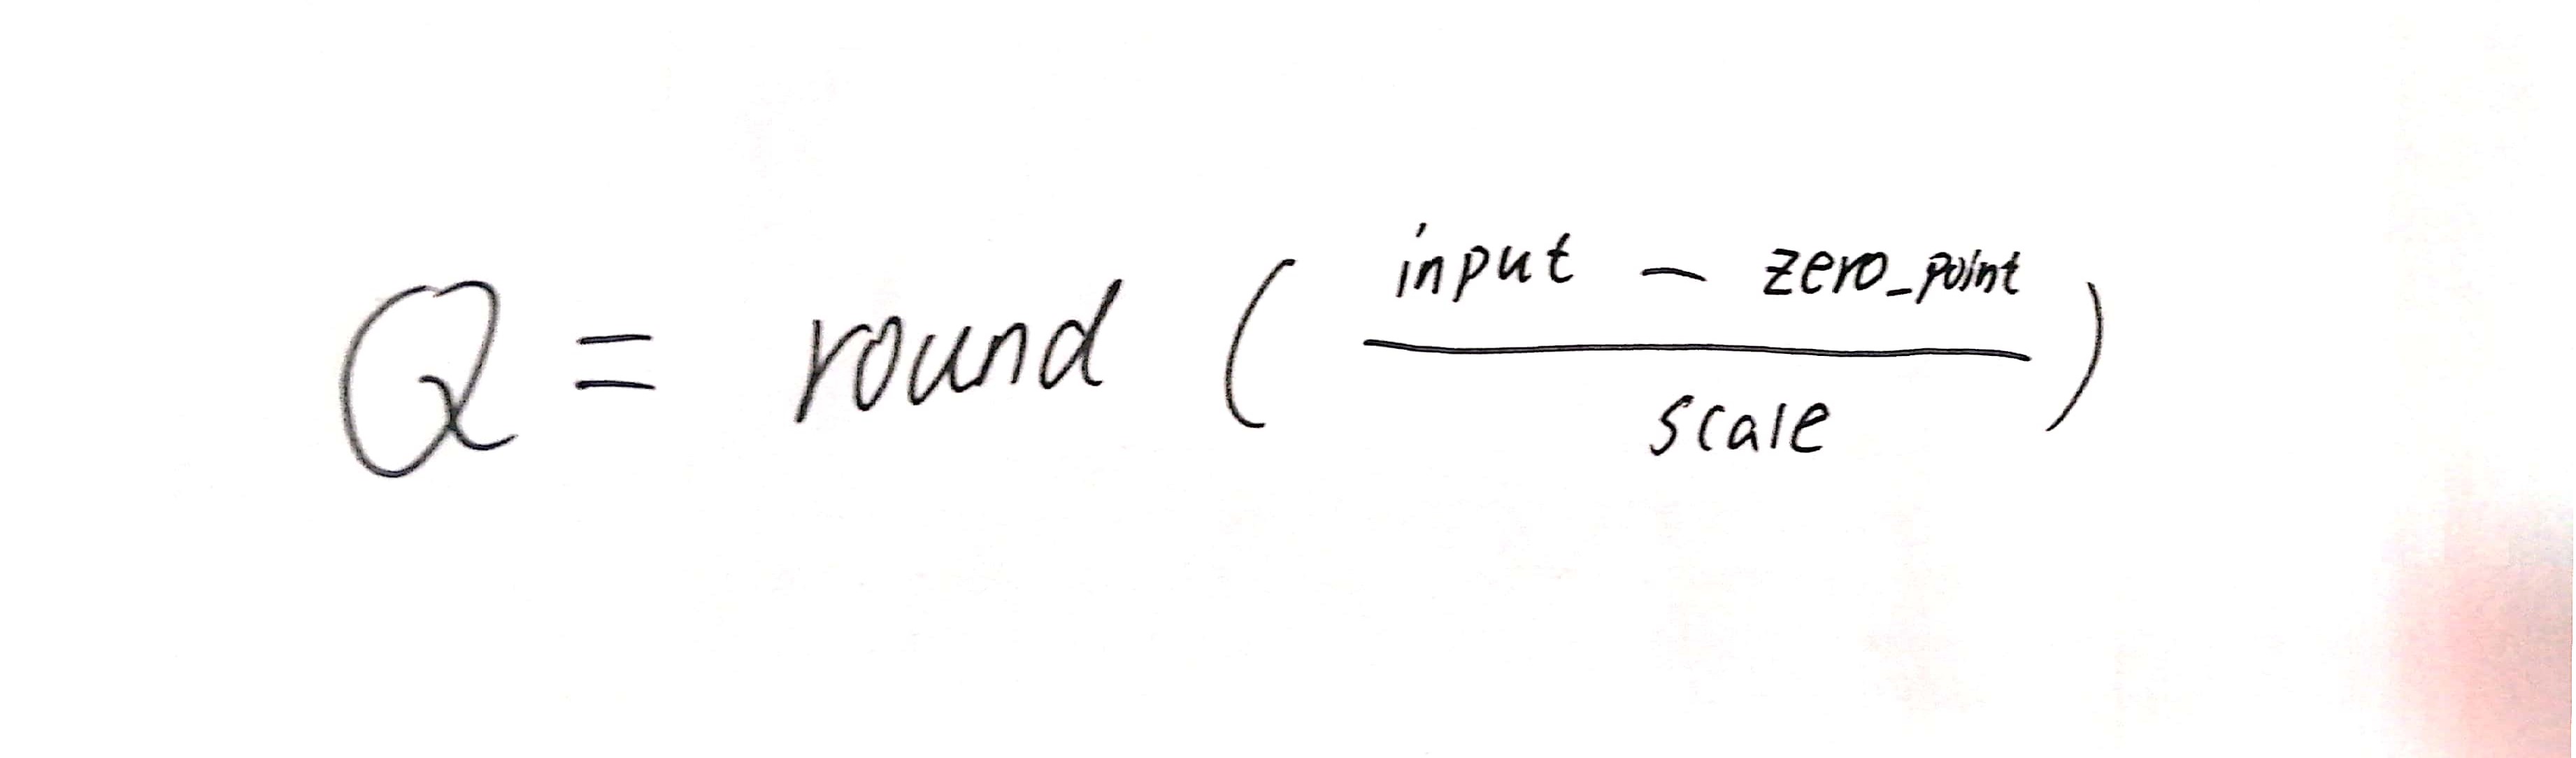 Q = round ( input - zero_point / scale )